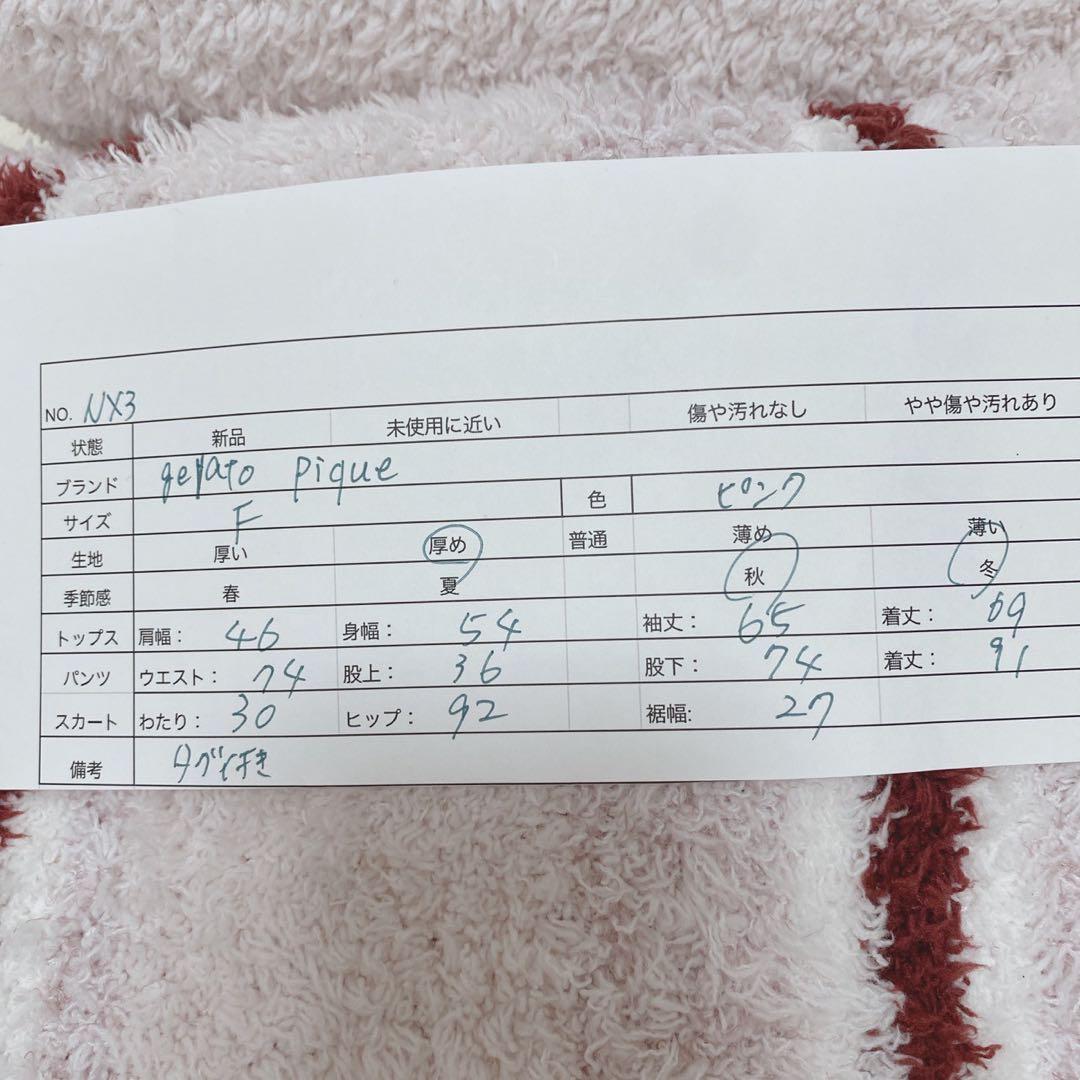 NO. NX3
状態 新品 未使用に近い 傷や汚れなし やや傷や汚れあり
ブランド gelato pique
サイズ F 色 ピンク
生地 厚い 厚め 普通 薄め 薄い
季節感 春 夏 秋 冬
トップス 肩幅： 46 身幅： 54 袖丈： 65 着丈： 69
パンツ ウエスト： 74 股上： 36 股下： 74 着丈： 91
スカート わたり： 30 ヒップ： 92 裾幅: 27
備考 タグ付き